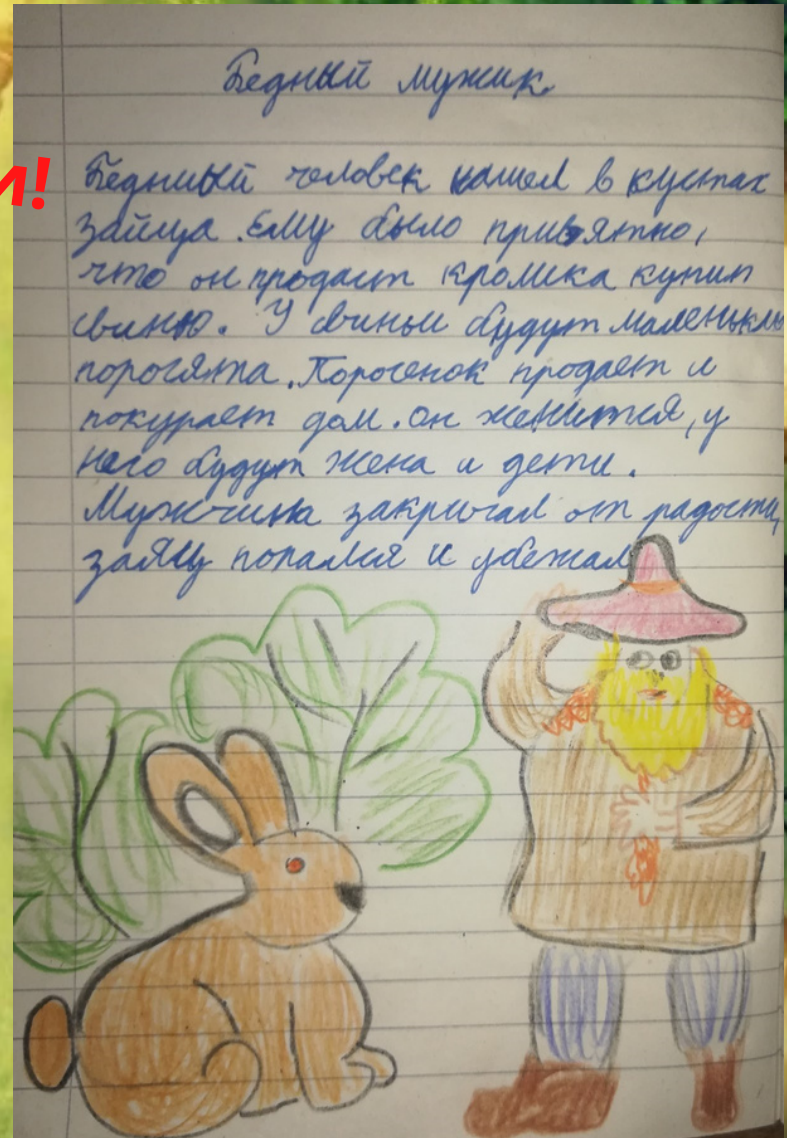 Бедный мужик
и!
Бедныый человек нашел в кустах
зайца. Ему было приьятно,
что он продаст кролика купит
свиню. У свиньи будут маленькие
порогята. Порогенок продает и
покурает дом. он женится, у
него будут жена и дети.
Мужчина закричал от радости,
заяц попался и убежал